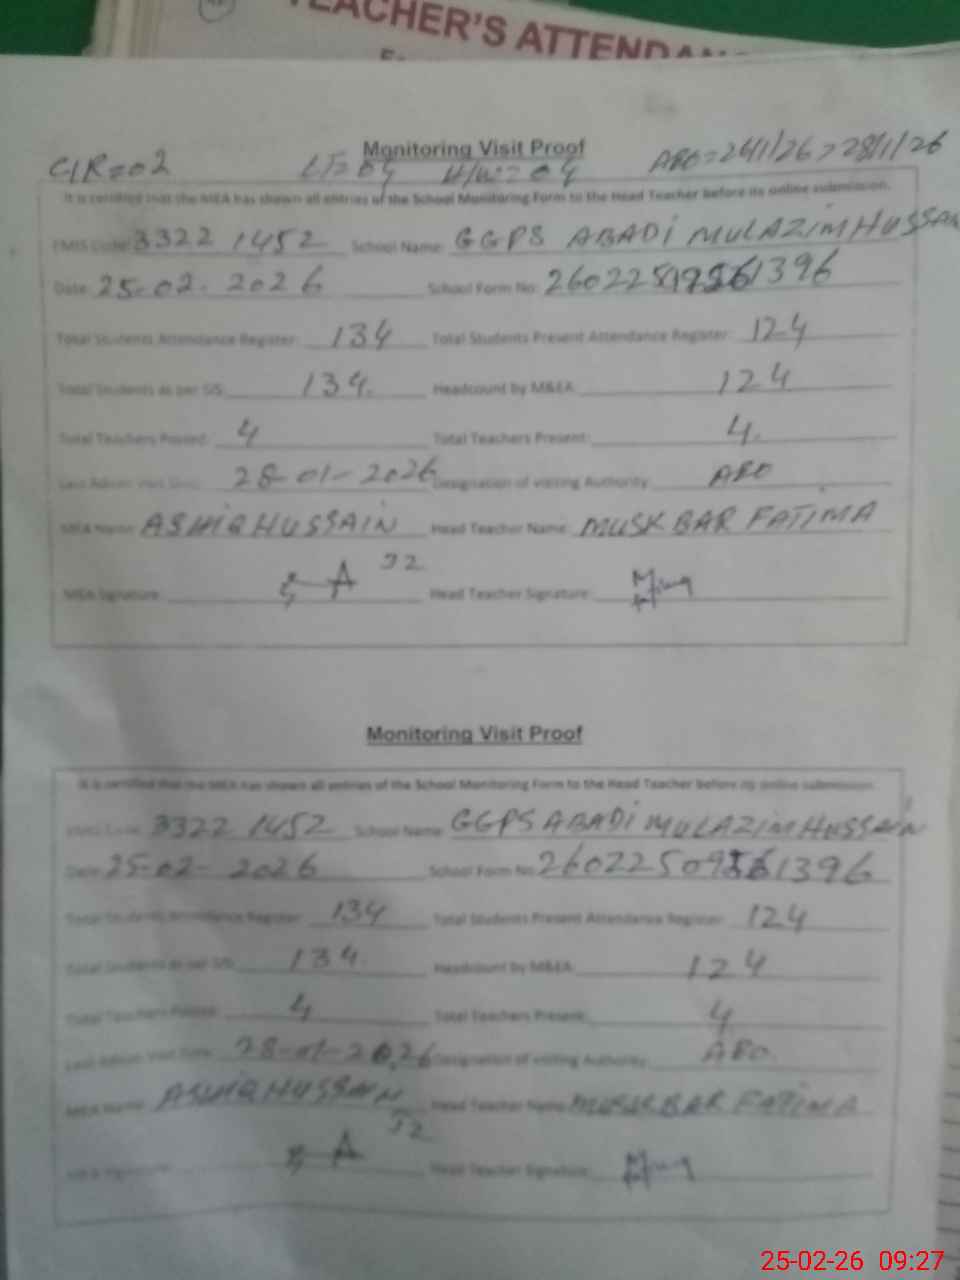 TEACHER'S ATTENDAN
Monitoring Visit Proof
CIR=02 LF=04 H/W=04 AEO=24/1/26>28/1/26
It is certified that the MEA has shown all entries of the School Monitoring Form to the Head Teacher before its online submission.
EMIS Code: 3322 1452 School Name: GGPS ABADI MULAZIM HUSSAIN
Date: 25-02-2026 School Form No: 1396
Total Students Attendance Register: 134 Total Students Present Attendance Register: 124
Total Students as per SIS: 134. Headcount by M&EA: 124
Total Teachers Posted: 4 Total Teachers Present: 4.
Last Admin Visit Date: 28-01-2026 Designation of visiting Authority: AEO
MEA Name: ASHIQ HUSSAIN Head Teacher Name: MUSKBAR FATIMA
MEA Signature: Head Teacher Signature:
Monitoring Visit Proof
It is certified that the MEA has shown all entries of the School Monitoring Form to the Head Teacher before its online submission.
EMIS Code: 3322 1452 School Name: GGPS ABADI MULAZIM HUSSAIN
Date: 25-02-2026 School Form No: 1396
Total Students Attendance Register: 134 Total Students Present Attendance Register: 124
Total Students as per SIS: 134. Headcount by M&EA: 124
Total Teachers Posted: 4 Total Teachers Present: 4
Last Admin Visit Date: 28-01-2026 Designation of visiting Authority: AEO
MEA Name: ASHIQ HUSSAIN Head Teacher Name: MUSKBAR FATIMA
MEA Signature: Head Teacher Signature:
25-02-26 09:27